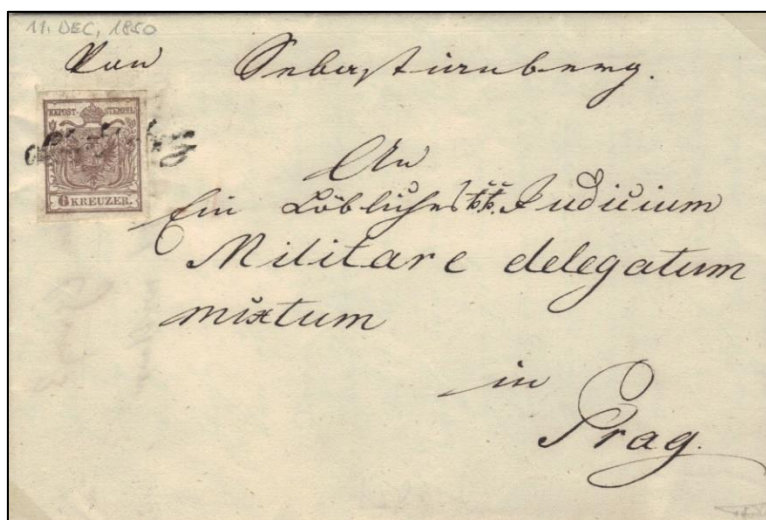 11. DEC, 1850
Von Sebastiansberg.
KK POST-STEMPEL
6 KREUZER.
An
Ein Löbliches k. k. Judicium
Militare delegatum
mixtum
in
Prag.